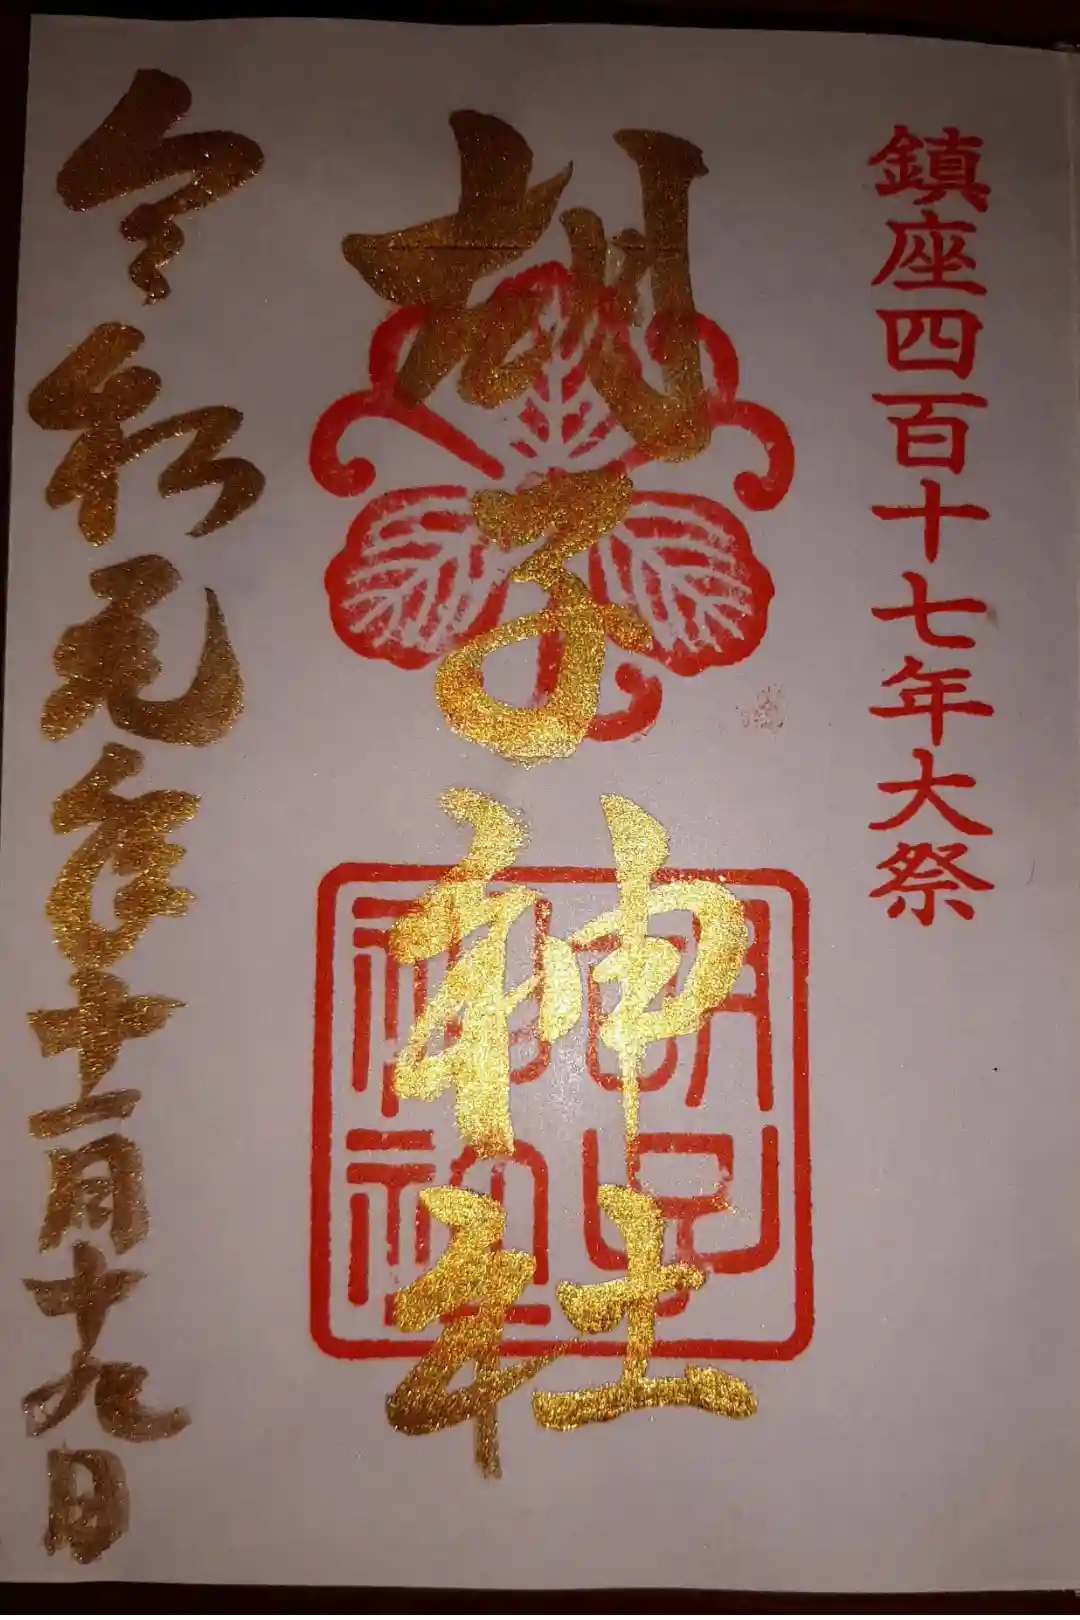 鎮座四百十七年大祭
胡子神社
胡子
神社
令和元年十一月十九日